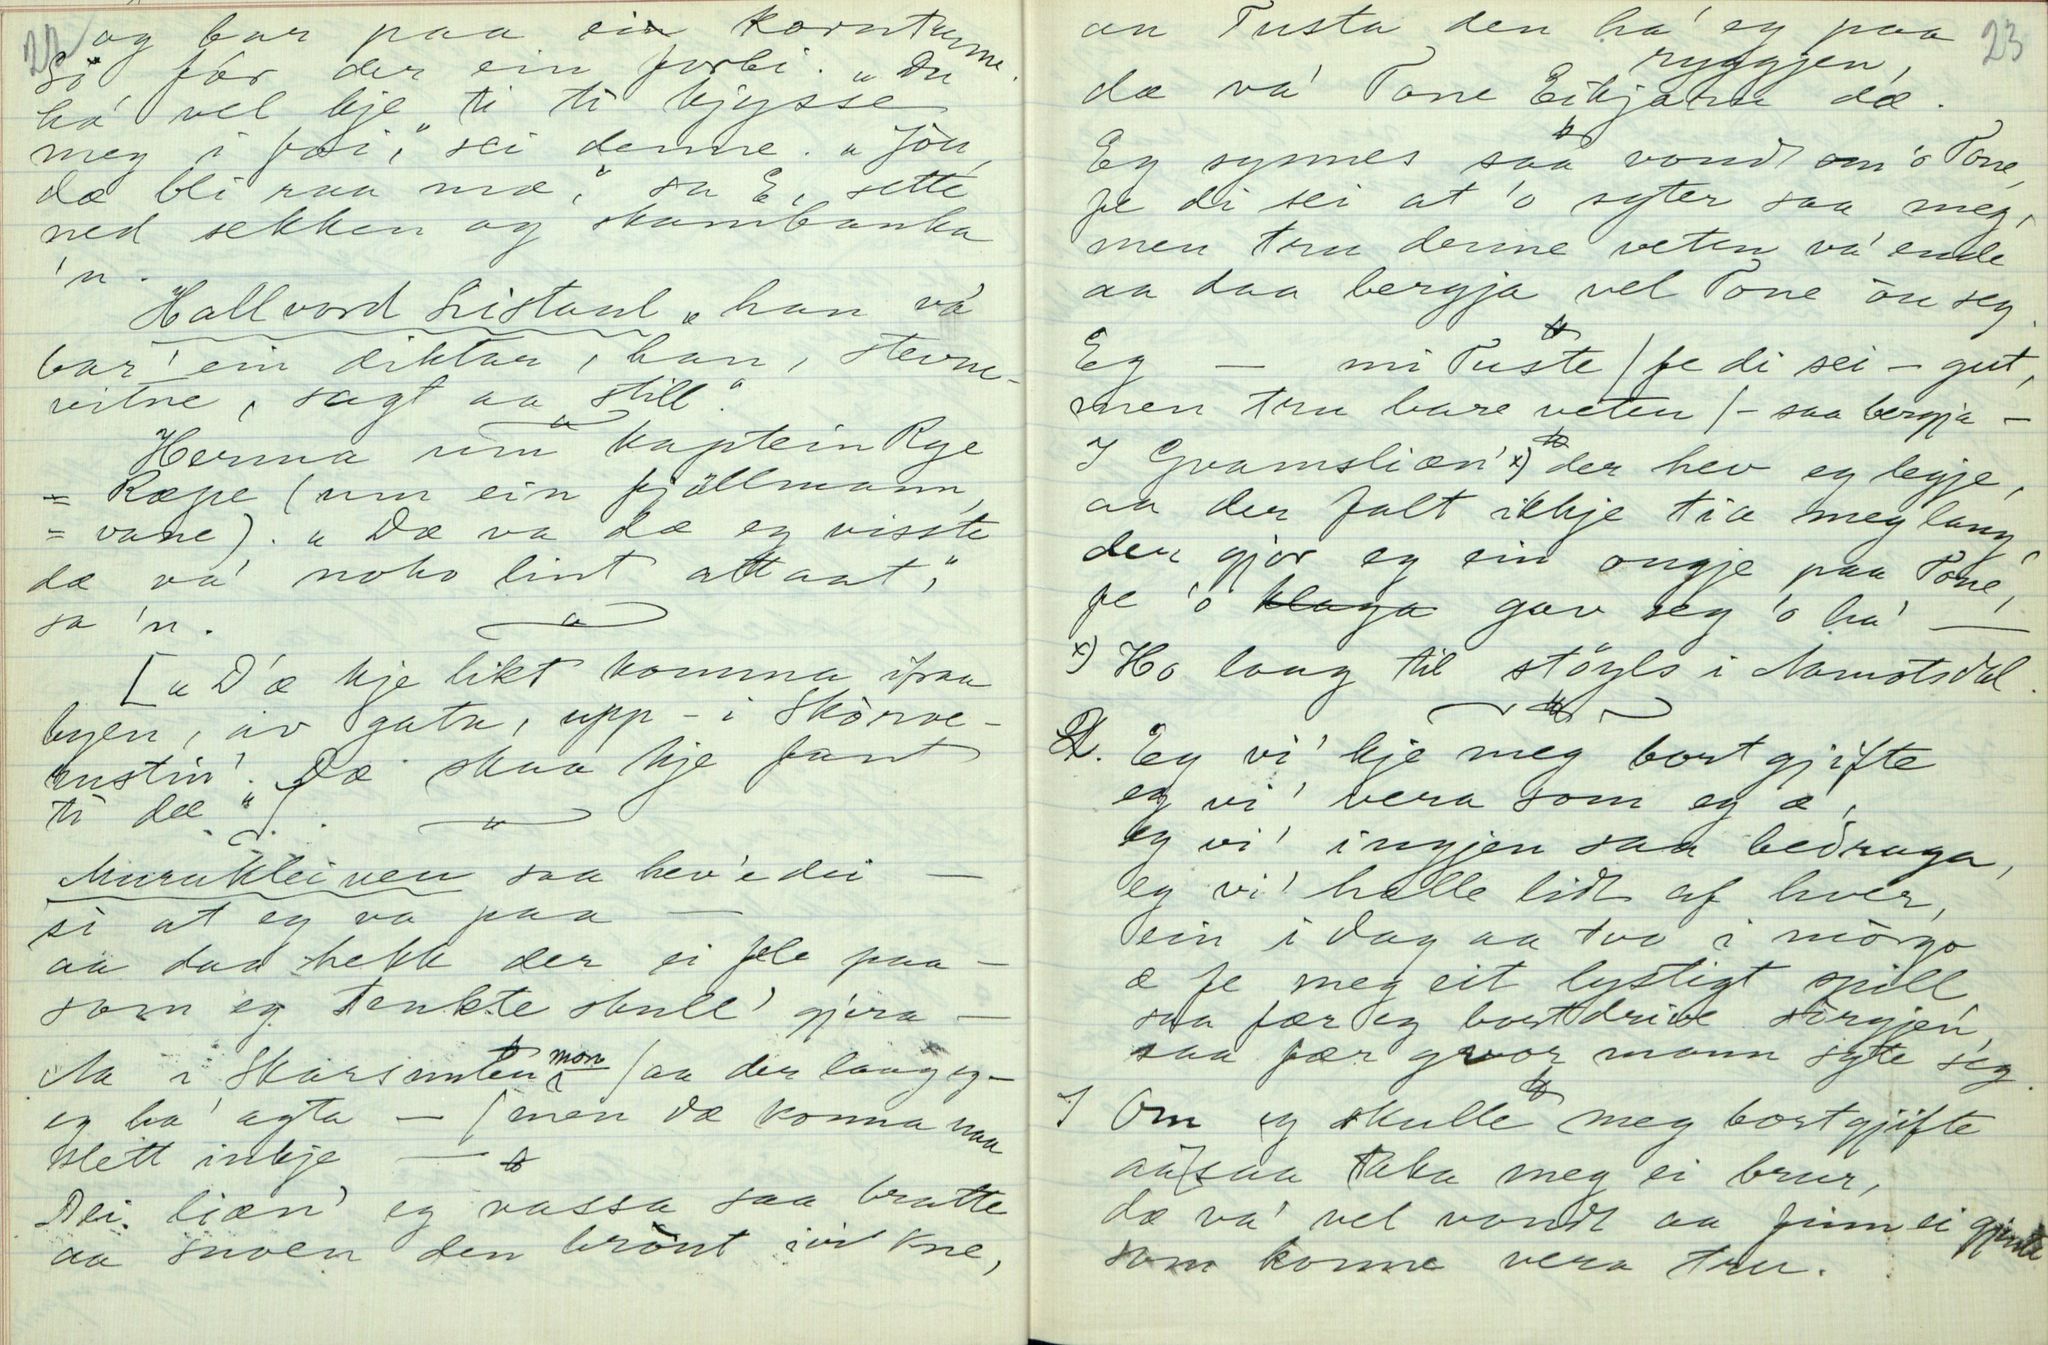 22
og bar paa ein korntunne.
So fór der ein forbi. "Du
há' vel kje ti ti kjysse
meg i fei," sei denne. "Jóu,
dæ bli raa mæ," sa E, sette
ned sekken og skambanka
'n.
Hallvord Listaul "han vá
bar' ein diktar, han, stevne-
vitne, sagt aa still."
Herma um kaptein Rye
= Ræpe (um ein fjøllmann,
= vane). "Dæ va dæ eg visste
dæ va' noko lint attaat,"
sa 'n.
["D'æ kje likt komma ifraa
byen, av gata, upp-i Skórve-
rustin'. Dæ skaa kje fant
ti dæ"].
Murakleiven saa hev'e dei —
si at eg va paa —
aa daa hekk der ei fele paa —
som eg tenkte skull' gjera —
Aa i Skarsnuten mon i / aa der laag eg —
eg ha' agta — / men dæ konna naa
slett inkje —
Dei liæn' eg vassa saa bratte
aa snoen den brönt ivi kne,
23
an Tusta den ha' eg paa
ryggjen,
dæ vá' Tone Eikjaru dæ.
Eg synnes saa vondt om 'o Tone,
fe di sei at 'o syter saa meg,
men tru denne veten vá' ende
aa daa bergja vel Tone óu seg.
Eg — mi Tuste / fe di sei — gut,
men tru bare veten / — saa bergja —
I Gvamsliæn' x) der hev eg legje,
aa der falt ikkje tia meg lang,
der gjor eg ein ongje paa Tone,
fe 'o klaga gav seg 'o há' —
x) Ho laag til stöyls i Aamotsdal.
2. Eg vi' kje meg bortgjifte
eg vi' vera som eg æ',
eg vi' ingjen saa bedraga,
eg vi' halle lidt af hver,
ein i dag aa tvo i mórgo
æ fe meg eit lystigt spill
saa fær eg bortdrive sorgjen,
saa fær gvor mann syte seg.
I Om eg skulle meg bortgjifte
aa saa taka meg ei brur,
dæ vá' vel vondt aa finn ei gjente
som konne vera tru.